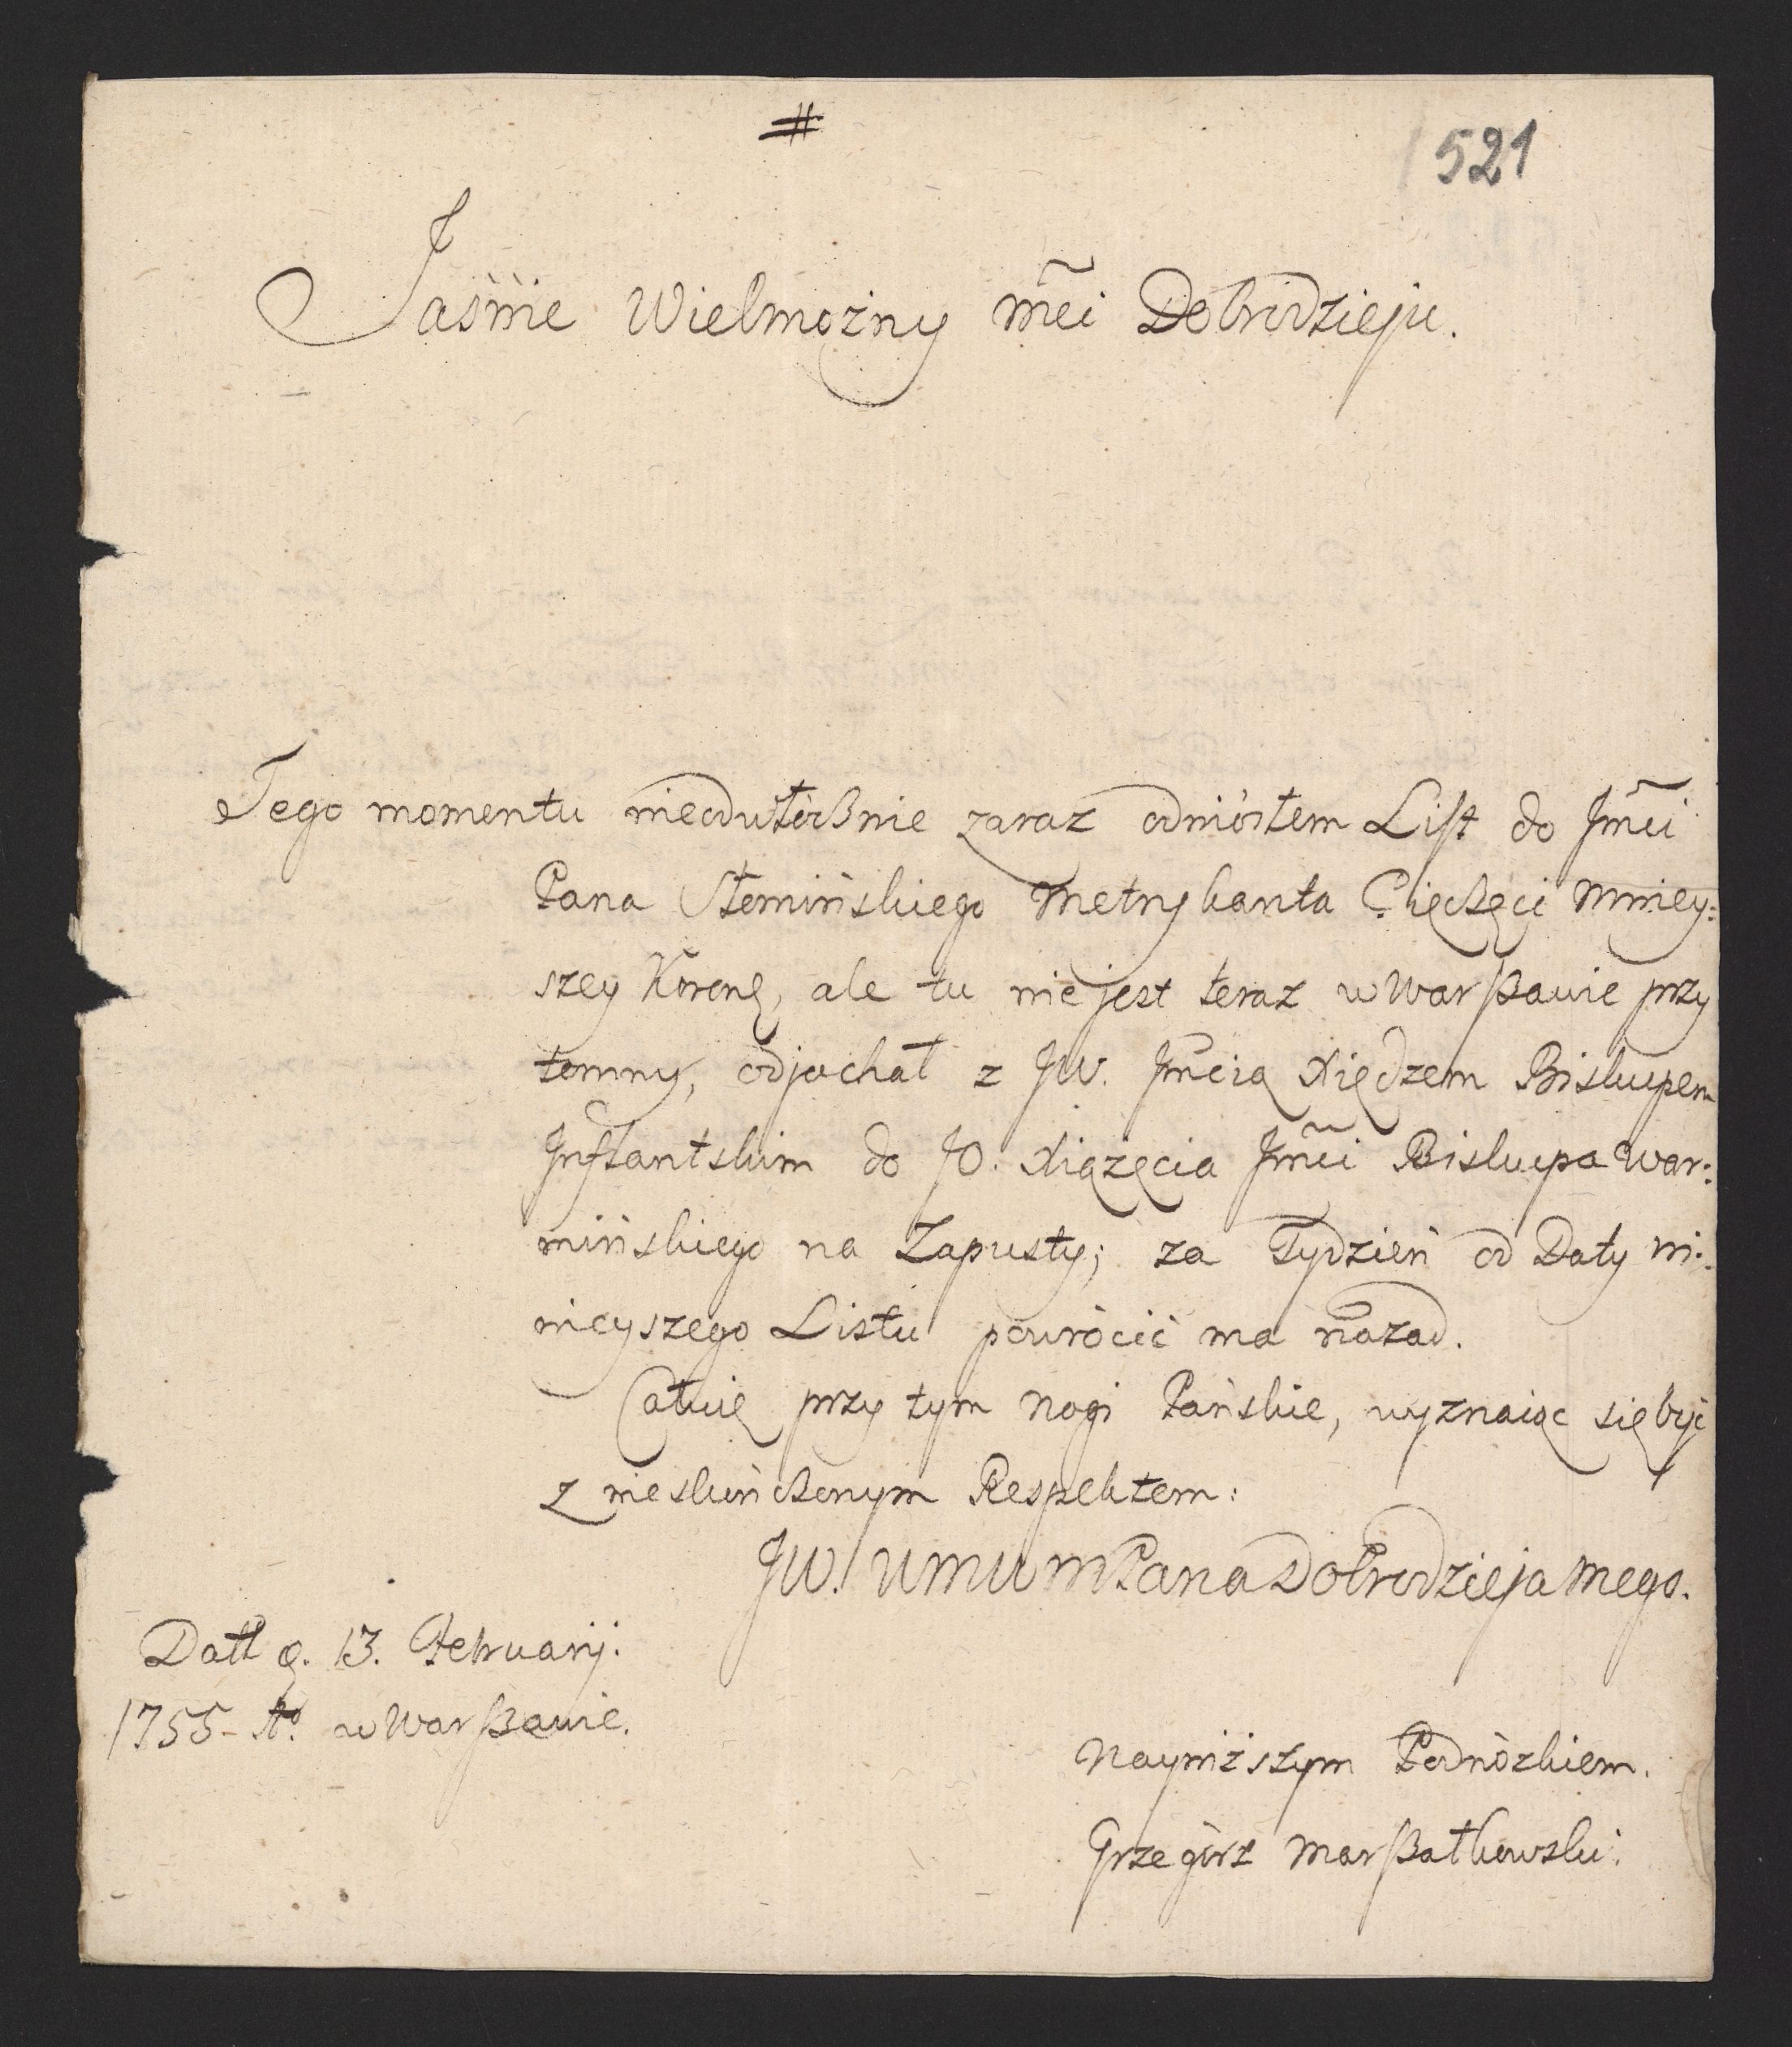 #
521
Jaśnie Wielmożny mći Dobrodzieju.
Tego momentu nieodwłóczßnie zaraz odniósłem List do Jmći
Pana Słemińskiego Metrykanta Pieczęci Mniey:
szey Koronę, ale tu nie jest teraz w Warßawie przy
tomny, odjachał z JW. Jmćią Xiędzem Biskupem
Jnflantskim do JO. Xiążęcia Jmći Biskupa War:
mińskiego na Zapusty; za Tydzień od Daty ni:
nieyszego Listu powrócić ma nazad.
Całuię przy tym nogi Pańskie, wyznaiąc się być
z nieskończonym Respektem:
JW. WMWMPana Dobrodzieja mego.
Datt ę. 13. Februarij.
1755– Ao. w Warßawie.
Nayniższym Podnóżkiem.
Grzegórz Marßałkowski.